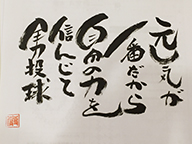 元気が
一番だから
自分の力を
信んじて
全力投球